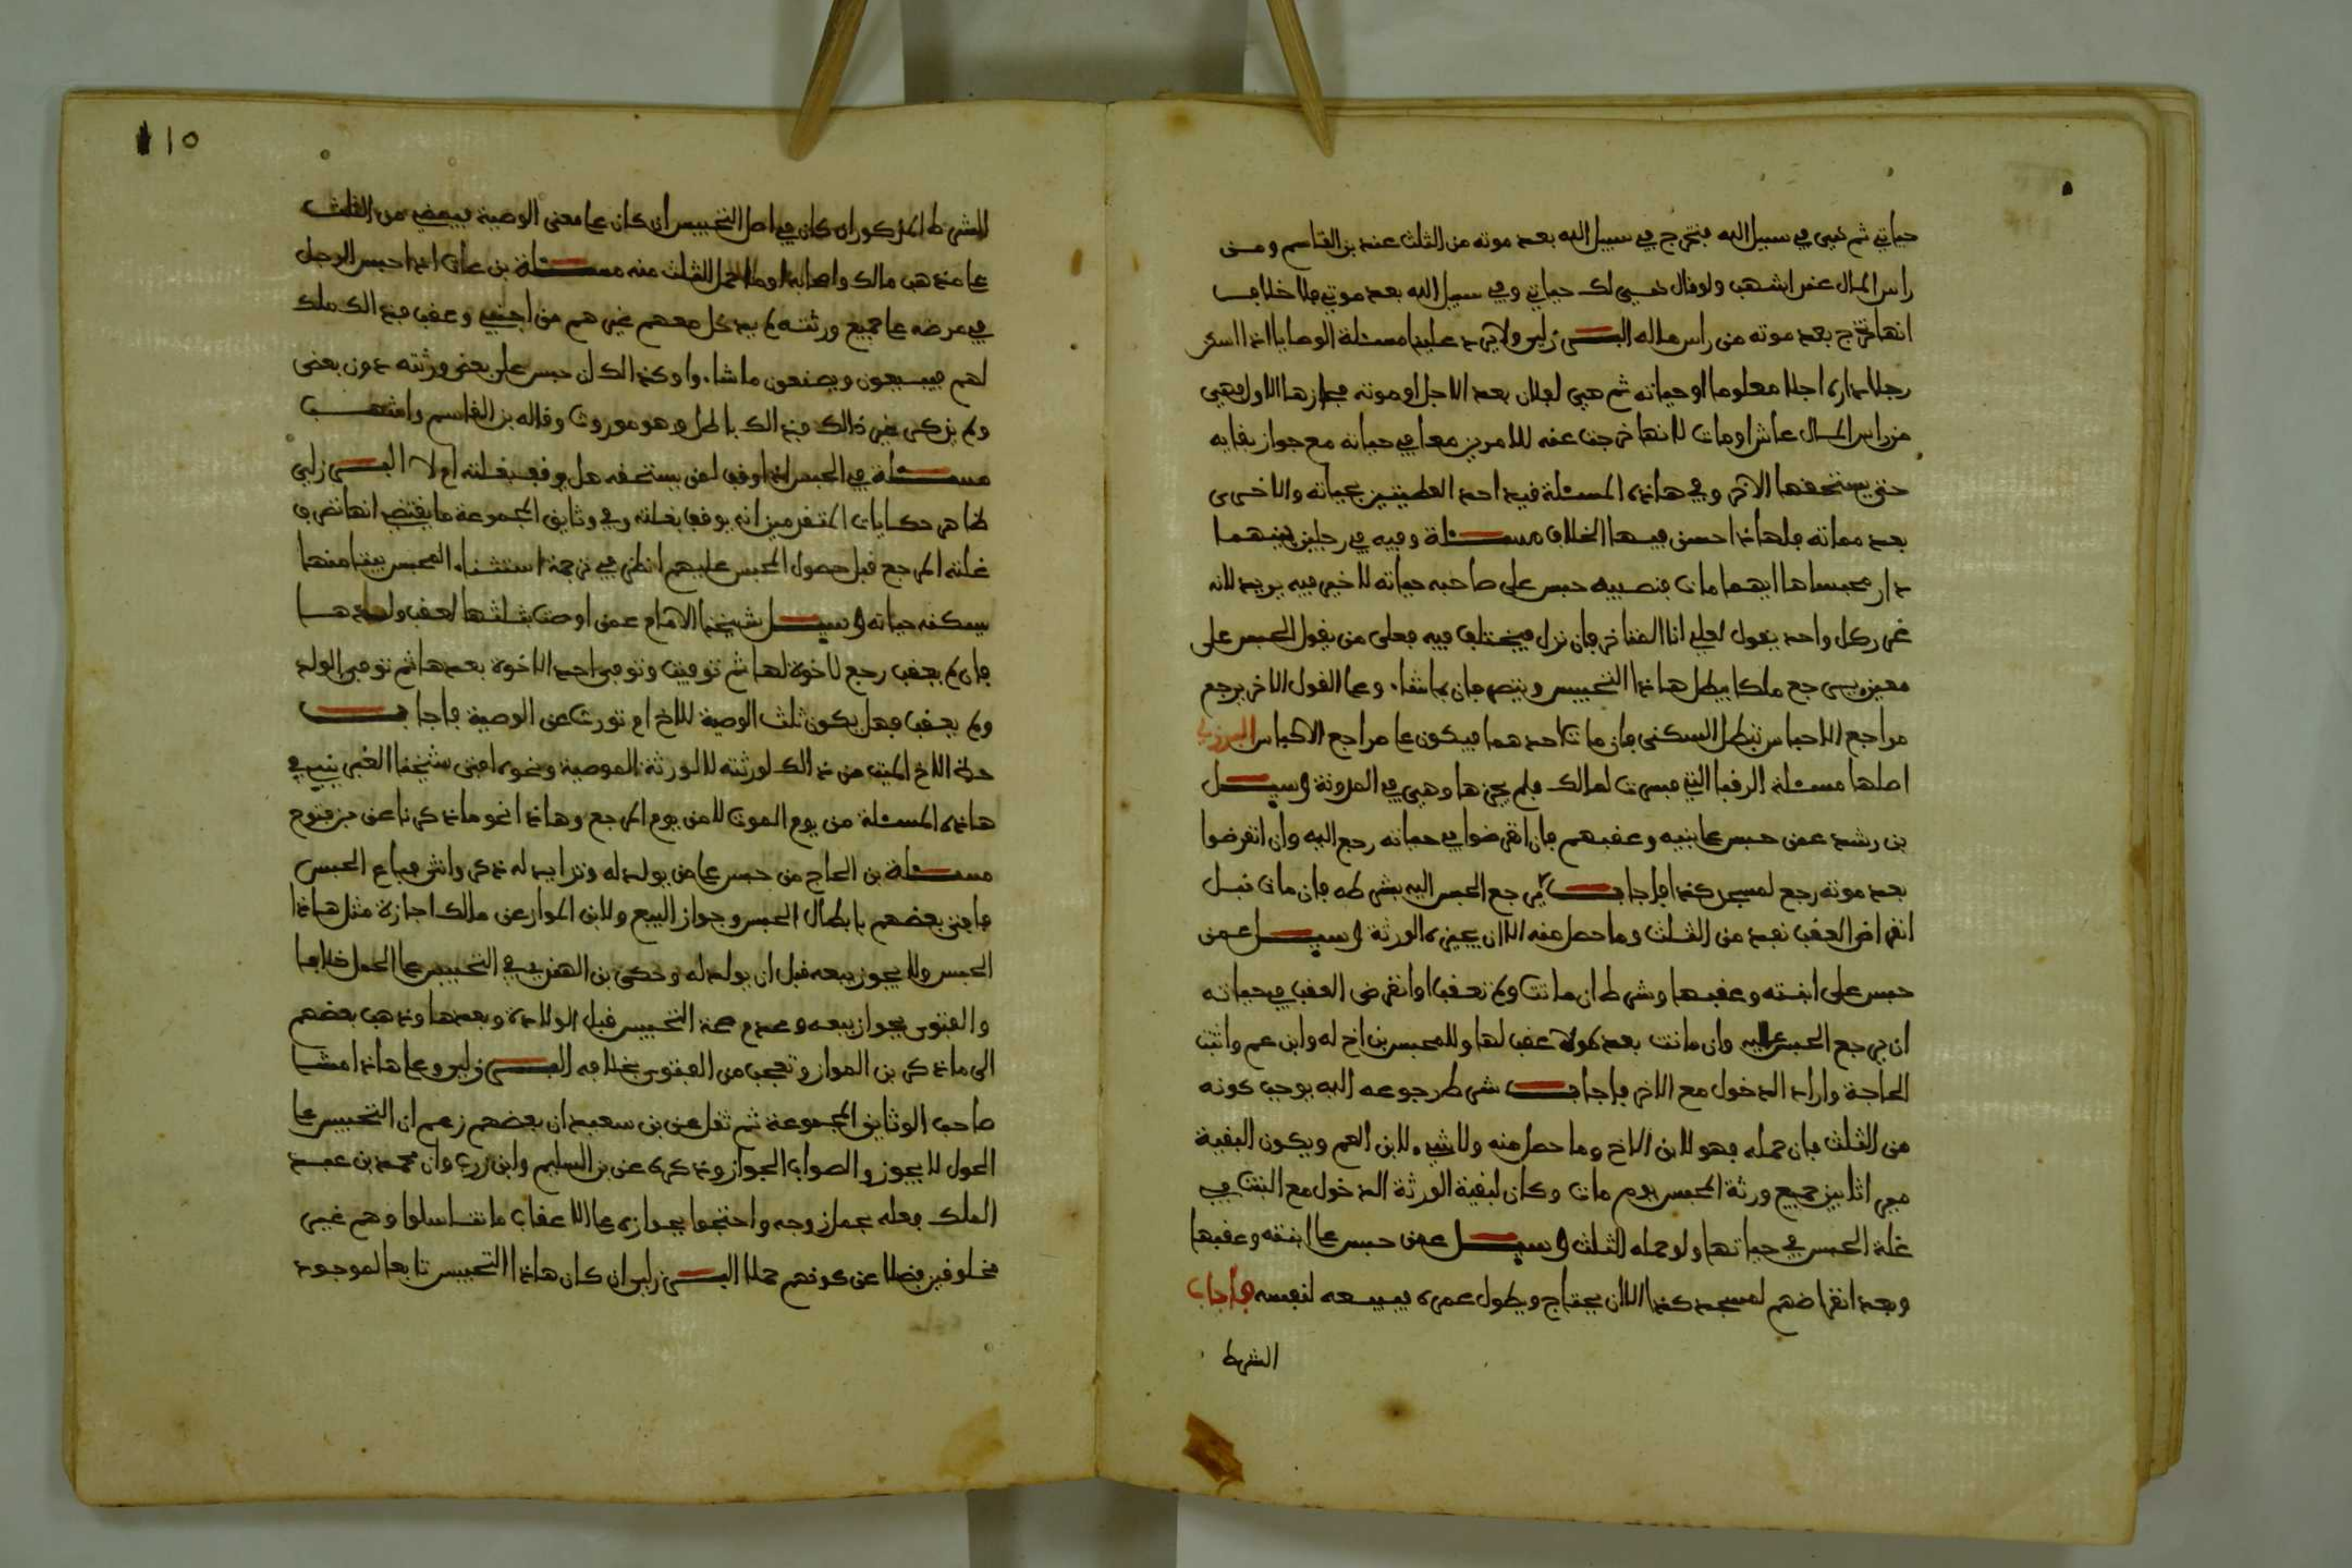 حياتي ثم هي في سبيل الله فتخرج في سبيل الله بعد موته من الثلث عند بن القاسم ومن
راس المال عند اشهب ولو قال هي لك حياتي وفي سبيل الله بعد موتي فلا خلاف
انها تخرج بعد موته من راس ماله البرزلي ولا يرد عليها مسئلة الوصايا اذا اسكن
رجلا داره اجلا معلوما او حياته ثم هي لفلان بعد الاجل او موته فحازها الاول فهي
من راس المال عاش او مات لانها خرجت عنه للامرين معا في حياته مع جواز بقايه
حتى يستحقها الاخر وفي هاذه المسئلة قيد احد العطيتين بحياته والاخرى
بعد مماته فلهاذا حسن فيها الخلاف مسئلة وفيه في رجلين بينهما
دار فحبساها ايهما مات فنصيبه حبس على صاحبه حياته لا خير فيه يريد لانه
غرر كل واحد يقول لعلي انا المتاخر فان نزل فيختلف فيه فعلى من يقول الحبس على
معين يرجع ملكا يبطل هاذا التحبيس ويتصرفان بما شاء وعلى القول الاخر يرجع
مراجع الاحباس تبطل السكنى فان مات احدهما فيكون على مراجع الاحباس البرزلي
اصلها مسئلة الرقبا التي فسرت لمالك فلم يجزها وهي في المدونة وسيل
بن رشد عمن حبس على بنيه وعقبهم فان انقرضوا في حياته رجع اليه وان انقرضوا
بعد موته رجع لمسجد كذا فاجاب يرجع الحبس اليه بشرطه فان مات قبل
انقراض العقب نفذ من الثلث وما حصل منه الا ان يجيزه الورثة وسيل عمن
حبس على ابنته وعقبها وشرط ان ماتت ولم تعقب او انقرض العقب في حياته
ان يرجع الحبس اليه وان ماتت بعده ولا عقب لها وللمحبس بن اخ له وابن عم واثبت
الحاجة واراد الدخول مع الاخر فاجاب شرط رجوعه اليه يوجب كونه
من الثلث فان حمله فهو لابن الاخ وما حصل منه ولا شيء لابن العم ويكون البقية
ميراثا بين جميع ورثة المحبس يوم مات وكان لبقية الورثة الدخول مع البنت في
غلة الحبس في حياتها ولو حمله الثلث وسيل عمن حبس على ابنته وعقبها
وبعد انقراضهم لمسجد كذا الا ان يحتاج ويطول عمره فيبيعه لنفسه فاجاب
الشرط
١٥
للشرط المذكور ان كان في اصل التحبيس ان كان على معنى الوصية فينفذ من الثلث
على مذهب مالك واصحابه او ما حمل الثلث منه مسئلة بن عات اذا حبس الرجل
في مرضه على جميع ورثته لم يدخل معهم غيرهم من اجنبي وعقب فذالك ملك
لهم فيبيعون ويصنعون ما شاءوا وكذالك ان حبس على بعض ورثته دون بعض
ولم يذكر غير ذالك فذالك باطل وهو موروث وقاله بن القاسم واشهب
مسئلة في الحبس اذا وقف لمن يستحقه هل يوقف بغلته ام لا البرزلي
ظاهر حكايات المتقدمين انه يوقف بغلته وفي وثايق المجموعة ما يقتضي انها تصرف
غلته المرجع قبل حصول المحبس عليهم انظره في ترجمة استثناء المحبس بيتا منها
يسكنه حياته وسيل شيخنا الامام عمن اوصت بثلثها لعقب ولدها
فان لم يعقب رجع لاخوة لها ثم توفيت وتوفي احد الاخوة بعدها ثم توفي الولد
ولم يعقب فهل يكون ثلث الوصية للاخ ام تورث عن الوصية فاجاب
حظ الاخ الميت من ذالك لورثته لا لورثة الموصية ونحوه افتى شيخنا الغبريني في
هاذه المسئلة من يوم الموت لا من يوم المرجع وهاذا نحو ما ذكرنا عن بن فتوح
مسئلة بن الحاج من حبس على من يولد له وتزايد له ذكر وانثى فباع الحبس
فافتى بعضهم بابطال الحبس وجواز البيع ولابن المواز عن مالك اجازة مثل هاذا
الحبس ولا يجوز بيعه قبل ان يولد له وحكى بن الهندي في التحبيس على الحمل خلافا
والفتوى بجواز بيعه وعدم صحة التحبيس قبل الولادة وبعدها وذهب بعضهم
الى ما ذكر بن المواز وتعجب من الفتوى بخلافه البرزلي وعلى هاذا مشا
صاحب الوثايق المجموعة ثم نقل عن بن سعيد ان بعضهم زعم ان التحبيس على
الحمل لا يجوز والصواب الجواز وذكره عن بن السليم وابن زرب وان محمد بن عبد
الملك فعله بحمل زوجه واحتجوا بجوازه على الاعقاب ما تناسلوا وهم غير
مخلوقين فضلا عن كونهم حملا البرزلي ان كان هاذا التحبيس تابعا لموجود